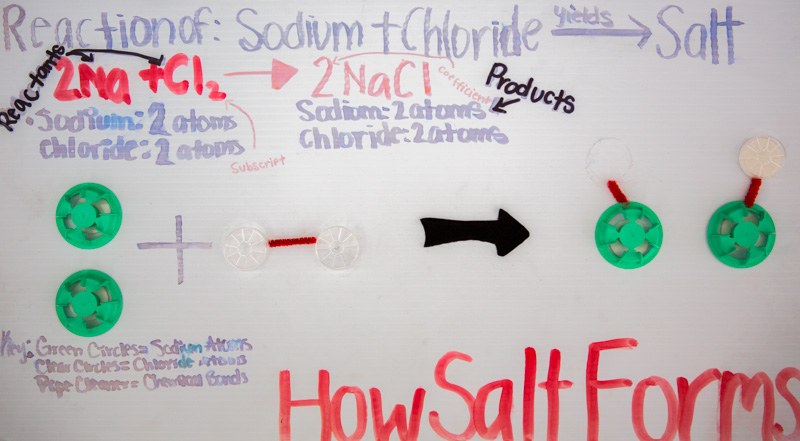 Reaction of: Sodium + Chloride yields Salt
Reactants
2Na + Cl2 2NaCl
coefficient
Products
Sodium: 2 atoms
Chloride: 2 atoms
Subscript
Sodium: 2 atoms
Chloride: 2 atoms
+
Key: Green Circles = Sodium Atoms
Clear Circles = Chloride atoms
Pipe Cleaner = Chemical Bonds
How Salt Forms